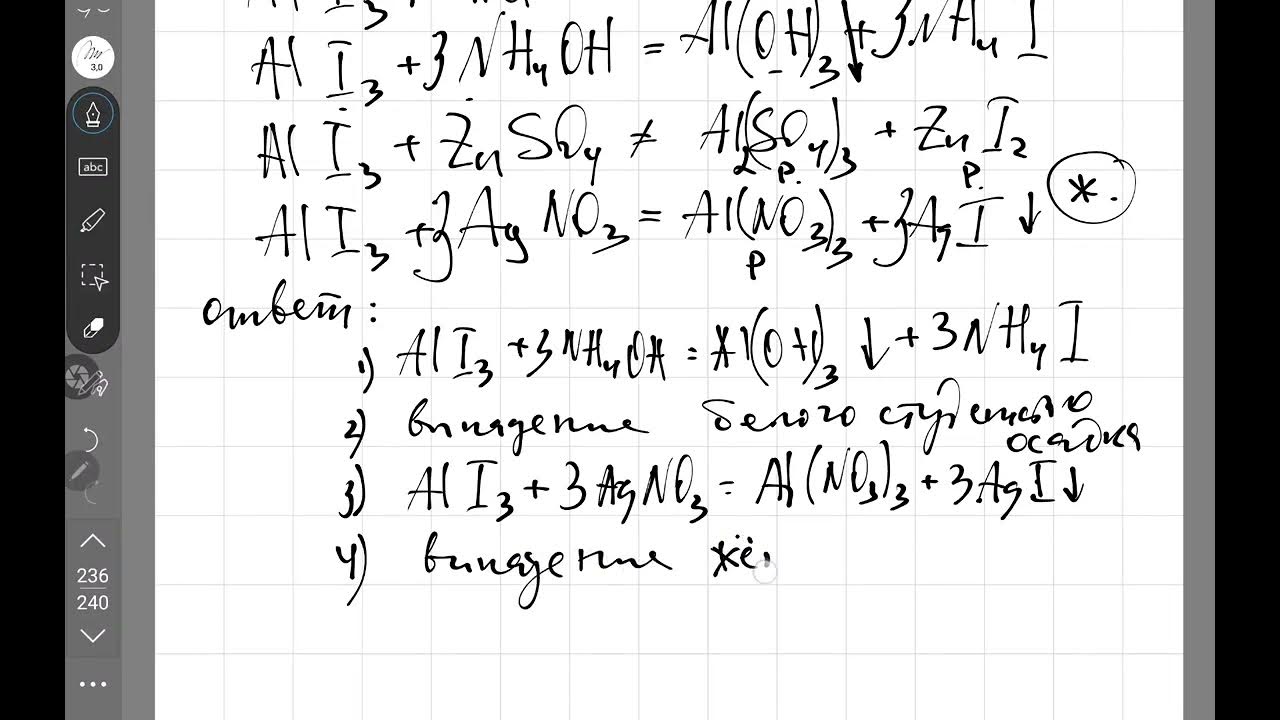 Al I₃ +
Al I₃ + 3NH₄OH = Al(OH)₃↓ + 3NH₄I
Al I₃ + ZnSO₄ ≠ Al₂(SO₄)₃ + ZnI₂
р. р.
Al I₃ + 3AgNO₃ = Al(NO₃)₃ + 3AgI↓ *.
р
ответ:
1) Al I₃ + 3NH₄OH = Al(OH)₃↓ + 3NH₄I
2) выпадение белого студенистого
осадка
3) Al I₃ + 3AgNO₃ = Al(NO₃)₃ + 3AgI↓
4) выпадение жё
3,0
abc
236
240